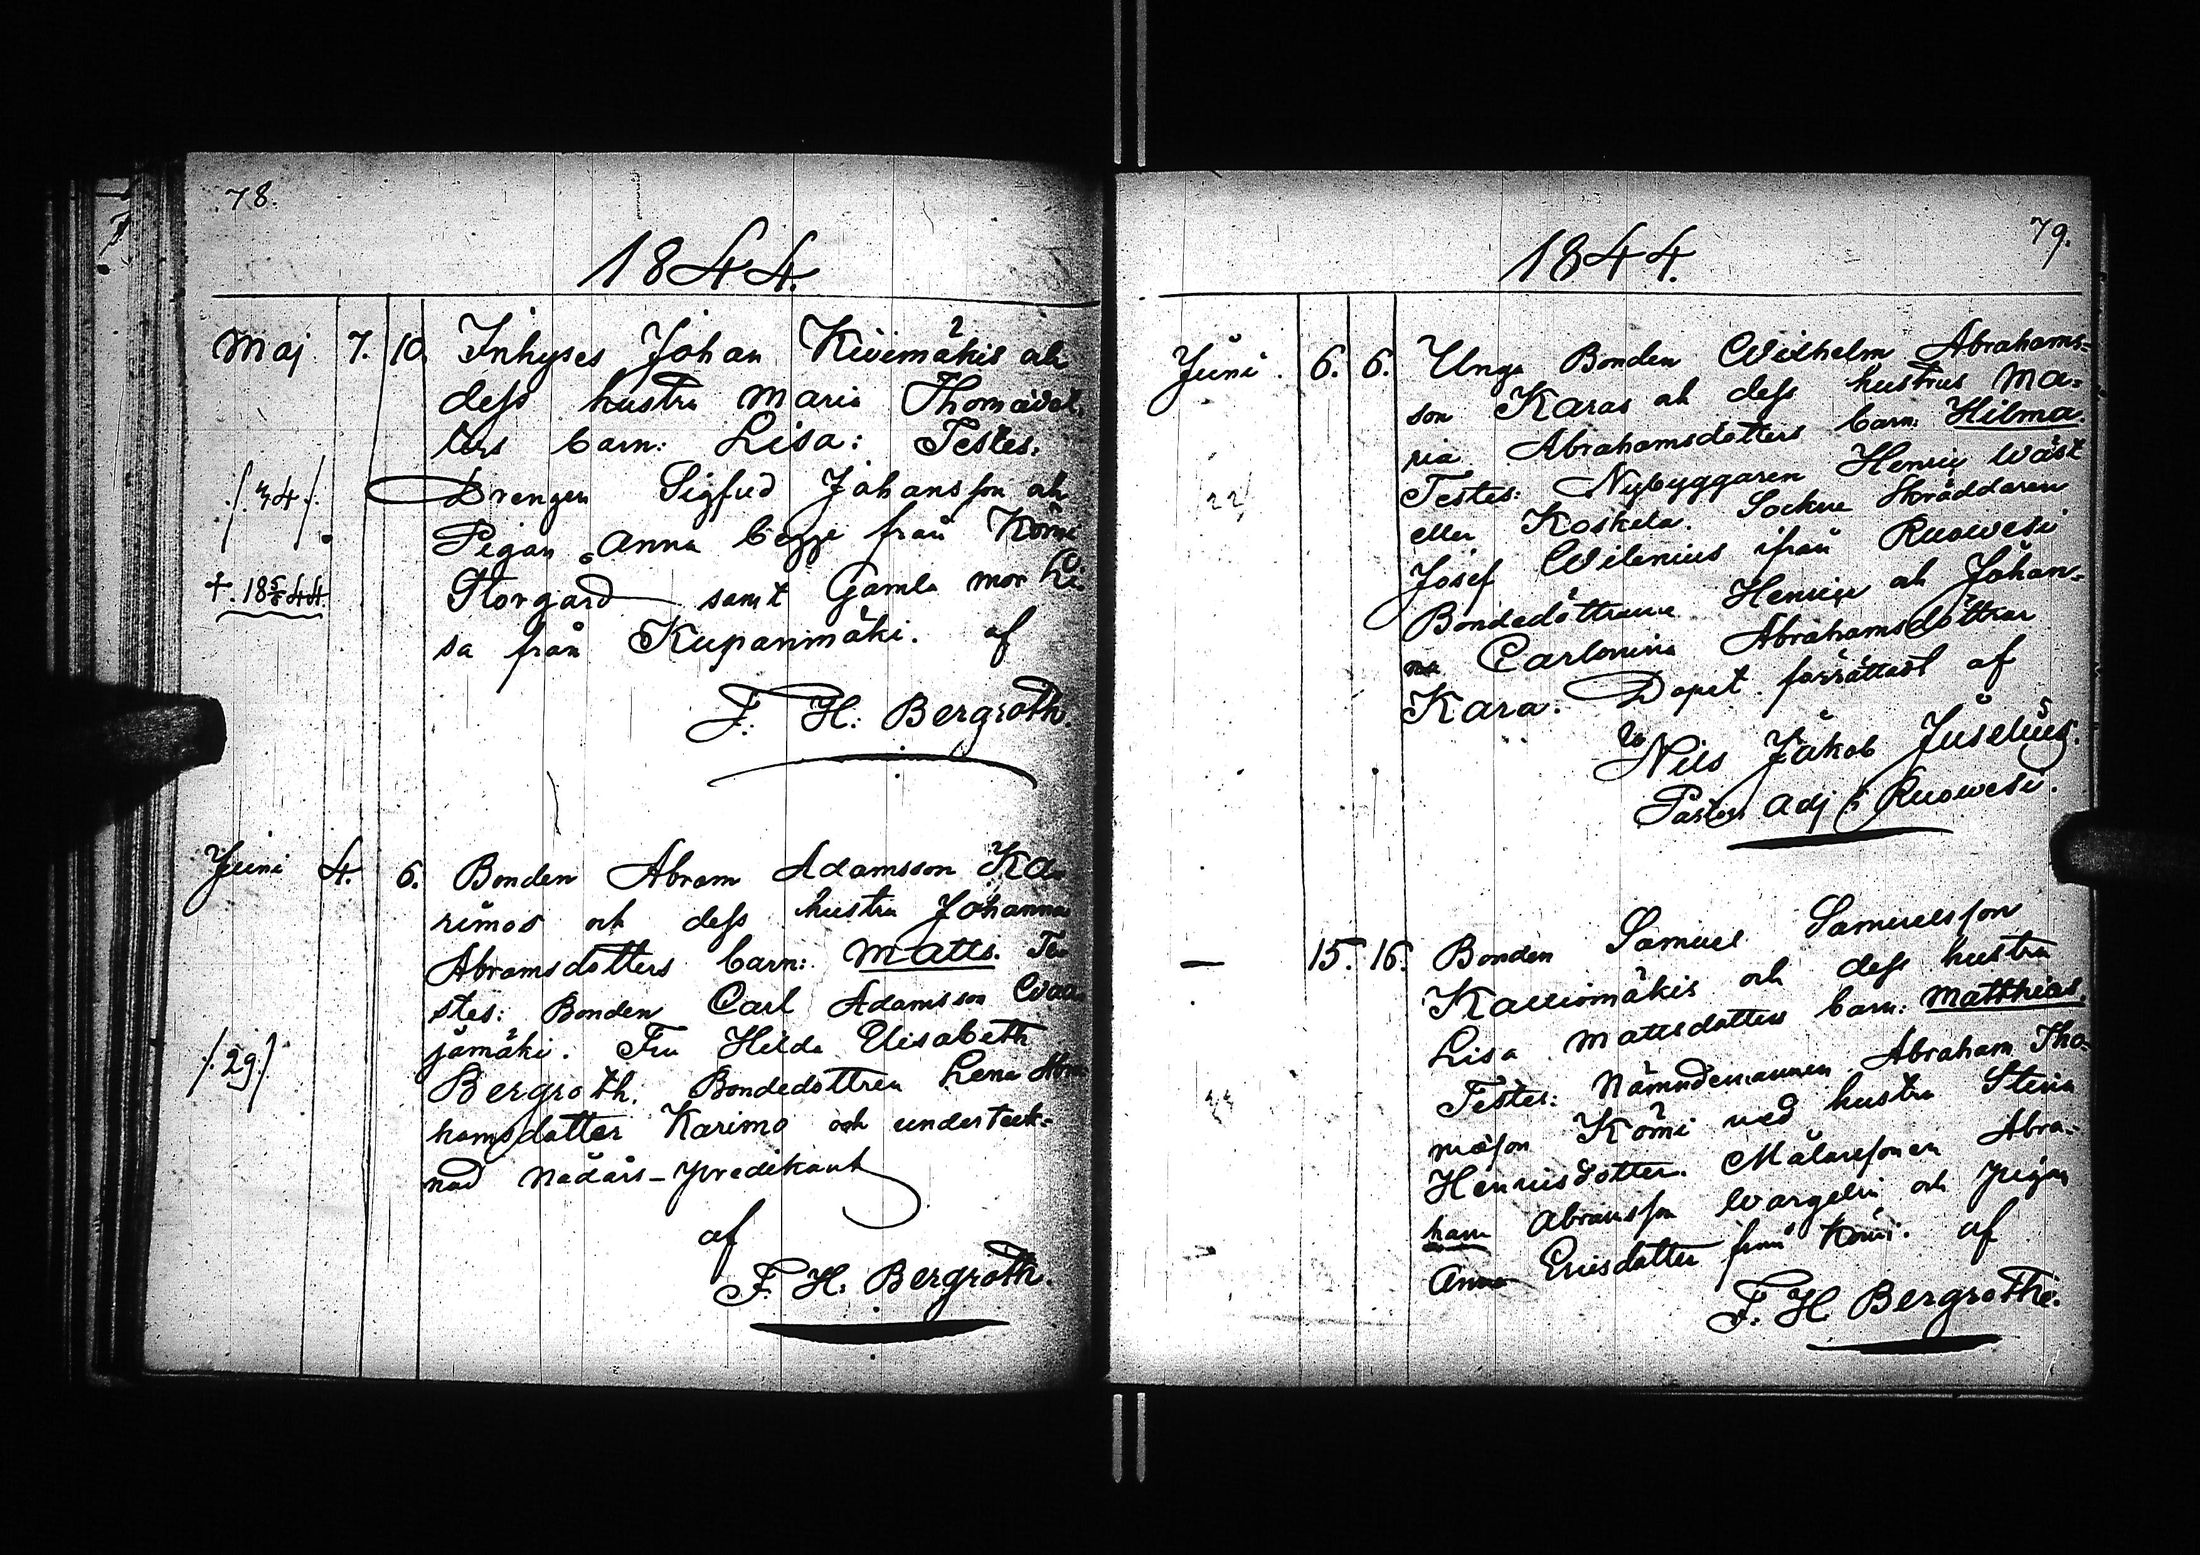 78.
1844.
Maj 7. 10. Inhyses Johan Kivimäkis och
dess hustru Maria Thomædot
ters barn: Lisa: Testes:
Drengen Sigfrid Johansson och
/:34:/
Pigan Anna från Kömi
† 18 5/6 44.
Storgård samt Gamla mor Li
sa från Kupanmäki. af
F. H. Bergroth.
Juni 4. 6. Bonden Abram Adamsson Ka
rimos och dess hustru Johanna
Abramsdotters barn: Matts. Te
stes: Bonden Carl Adamsson
jämäki. Fru Hilda Elisabeth
/:29:/
Bergroth. Bondedottren Lena Abra
hamsdotter Karimo och underteck-
nad Nådårs-predikant
af
F. H. Bergroth.
79.
1844.
Juni. 6. 6. Unga Bonden Wilhelm Abrahams-
son Karas och dess hustrus Ma-
ria Abrahamsdotters barn: Hilma.
Testes: Nybyggaren Henric Wäst
/22/
eller Koskela. Sockne Skräddaren
Josef Wilenius ifrån Ruowesi
Bondedöttrarne Henrica och Johan-
na Carlonina Abrahamsdöttrar
Kara. Dopet förrättadt af
Nils Jakob Juselius.
Pastors Adj i Ruowesi.
— 15. 16. Bonden Samuel Samuelsson
Kalliomäkis och dess hustru
Lisa Mattsdotters barn: Matthias.
Testes: Nämndemannen Abraham Tho-
masson Kömi med hustru Stina
Henricsdotter. Målaresonen Abra-
ham Abramsson Wargelin och pigan
Anna Ericsdotter från Kömi. af
F. H Bergroth.